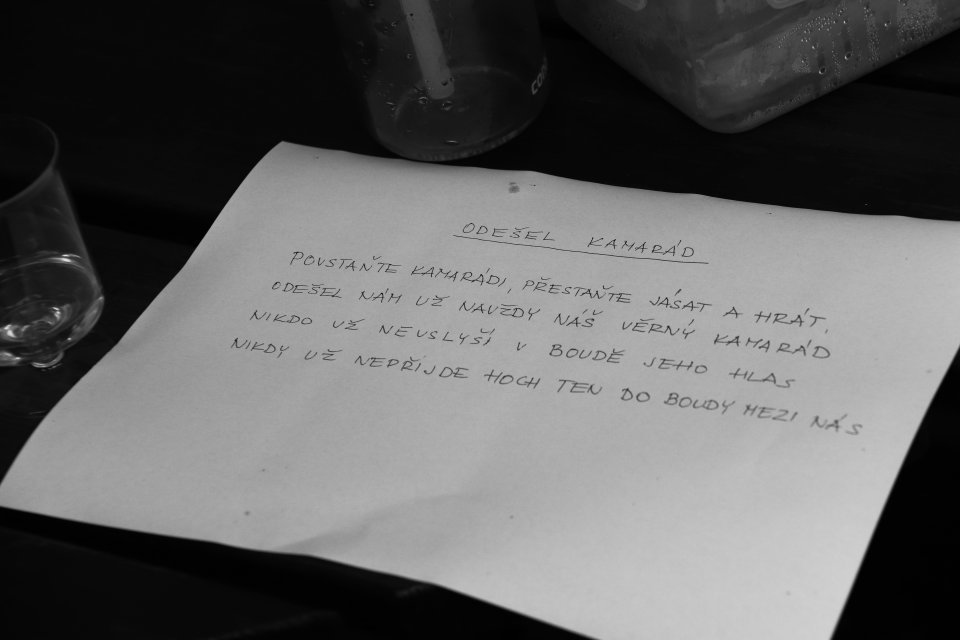 ODEŠEL KAMARÁD
POVSTAŇTE KAMARÁDI, PŘESTAŇTE JÁSAT A HRÁT,
ODEŠEL NÁM UŽ NAVŽDY NÁŠ VĚRNÝ KAMARÁD
NIKDO UŽ NEUSLYŠÍ V BOUDĚ JEHO HLAS
NIKDY UŽ NEPŘIJDE HOCH TEN DO BOUDY MEZI NÁS